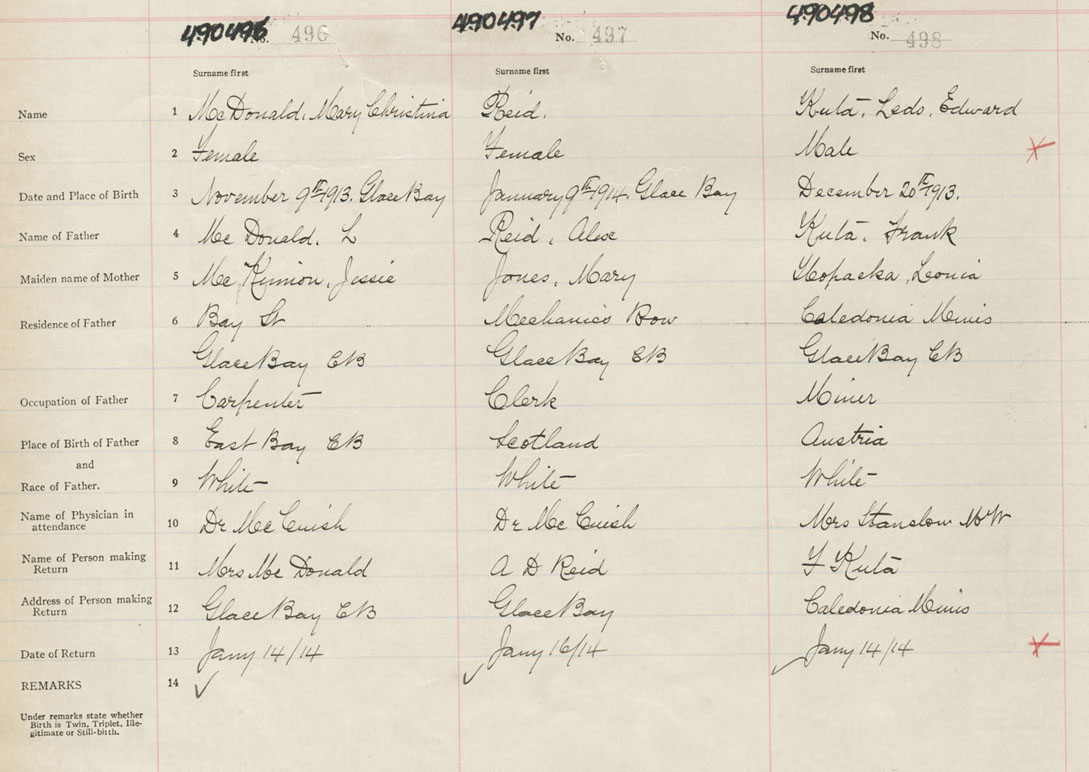 490496 490497 490498
No. 496 No. 497 No. 498
Surname first Surname first Surname first
Name 1 McDonald, Mary Christina Reid. Kuta, Leds, Edward
Sex 2 Female Female Male
Date and Place of Birth 3 November 9th 1913. Glace Bay January 9th 1914. Glace Bay December 20th 1913.
Name of Father 4 Mc Donald, L Reid, Alex Kuta, Frank
Maiden name of Mother 5 Mc Kinnon, Jessie Jones, Mary Leonia
Residence of Father 6 Bay St Mechanics Row Caledonia Mines
Glace Bay CB Glace Bay CB Glace Bay CB
Occupation of Father 7 Carpenter Clerk Miner
Place of Birth of Father 8 East Bay CB Scotland Austria
and
Race of Father. 9 White White White
Name of Physician in
attendance 10 Dr Mc Cuish Dr Mc Cuish Mrs Stanslow MW
Name of Person making
Return 11 Mrs Mc Donald A D Reid F Kuta
Address of Person making
Return 12 Glace Bay CB Glace Bay Caledonia Mines
Date of Return 13 Jany 14/14 Jany 16/14 Jany 14/14
REMARKS 14 ✓
Under remarks state whether
Birth is Twin, Triplet, Ille-
gitimate or Still-birth.